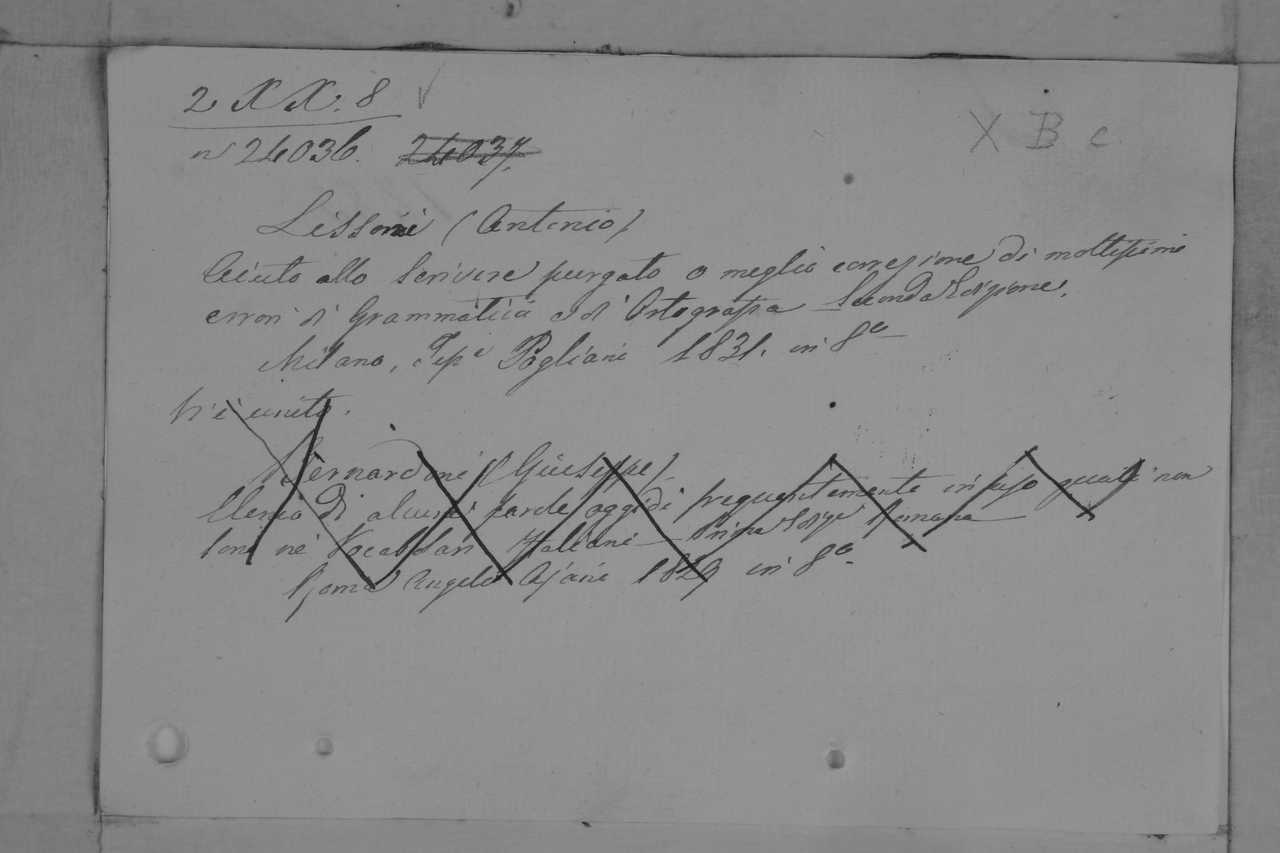 2 X X. 8
X B c.
n 24036. 24037.
Lissoni (Antonio)
Aiuto allo Scrivere purgato o meglio correzione di moltissimi
errori di Grammatica e di Ortografia Seconda Edizione.
Milano, Tipe Pogliani 1831. in 8o
Vi è unito.
Bernardoni (Giuseppe)
Elenco di alcune parole oggidì frequentemente in uso quali non
sono ne' Vocabolari Italiani - Prima Edize Romana
Roma Angelo Ajani 1829 in 8o.